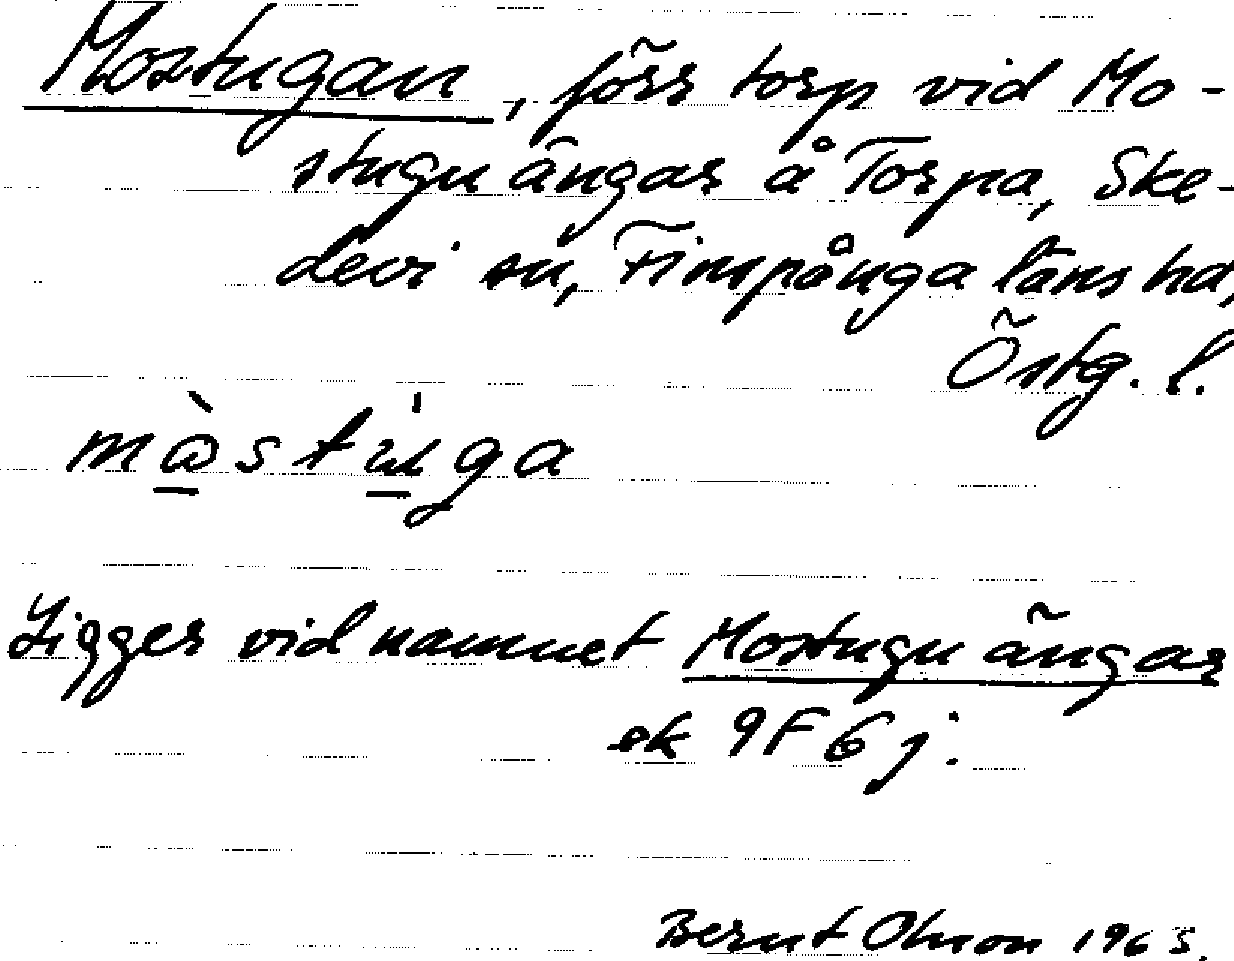 Mostugan, förr torp vid Mo-
stuguängar å Torpa, Ske-
devi sn, Finspånga läns hd,
Östg. l.
Ligger vid namnet Mostuguängar
ek 9F6j.
Bernt Olsson 1965.